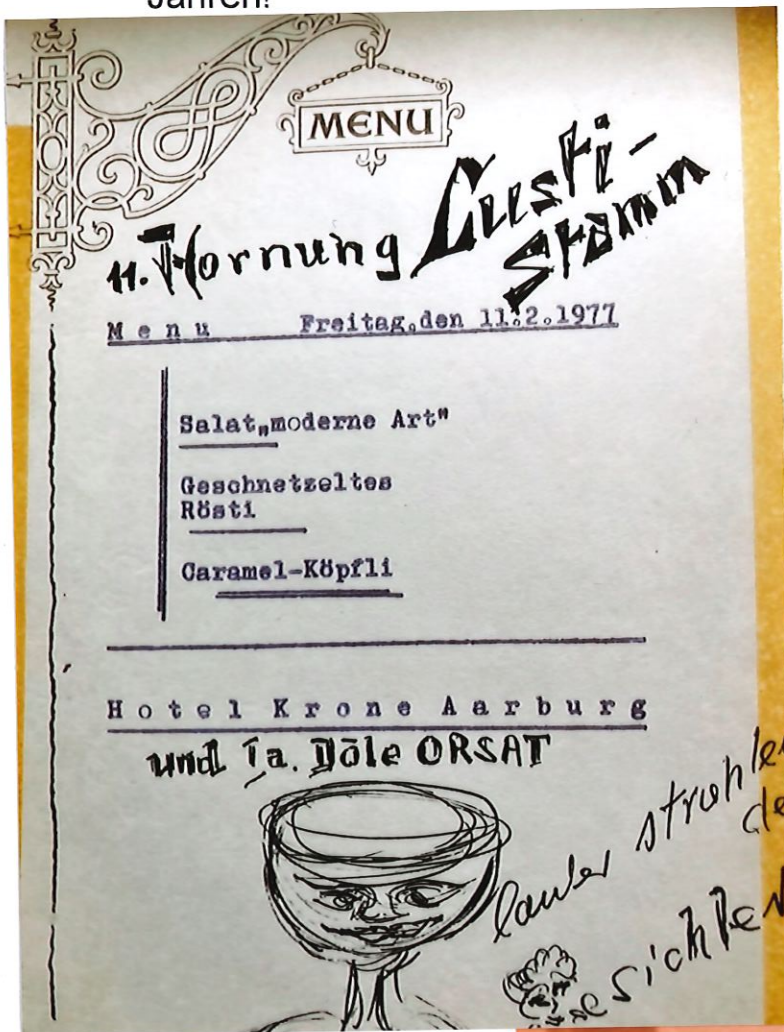 Jahren!
MENU
11. Hornung Lusti-
Stamm
Menu Freitag,den 11.2.1977
Salat„moderne Art"
Geschnetzeltes
Rösti
Caramel-Köpfli
Hotel Krone Aarburg
und Ia. Dôle ORSAT
lauter strahlen
de
Gesichter